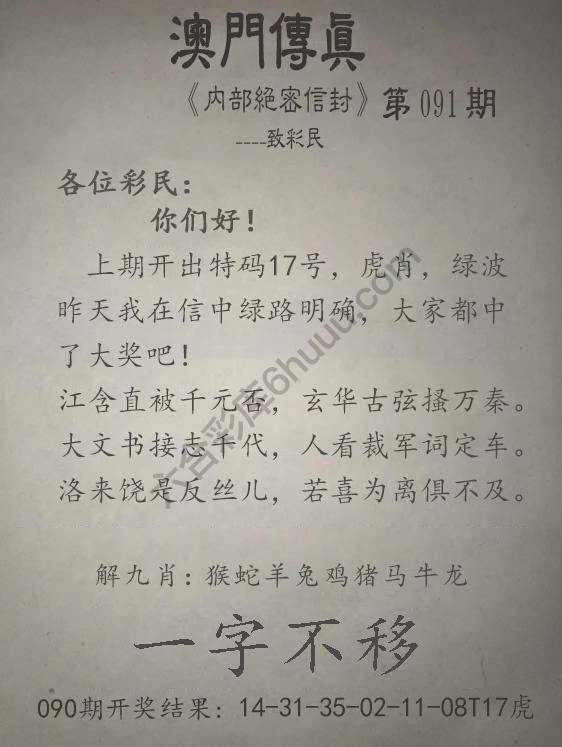 澳門傳真
《内部絕密信封》第091期
----致彩民
各位彩民：
你们好！
上期开出特码17号，虎肖，绿波
昨天我在信中绿路明确，大家都中
了大奖吧！
江含直被千元否，玄华古弦搔万秦。
大文书接志千代，人看裁军词定车。
洛来饶是反丝儿，若喜为离俱不及。
解九肖：猴蛇羊兔鸡猪马牛龙
一字不移
090期开奖结果：14-31-35-02-11-08T17虎
六合彩库6huuu.com